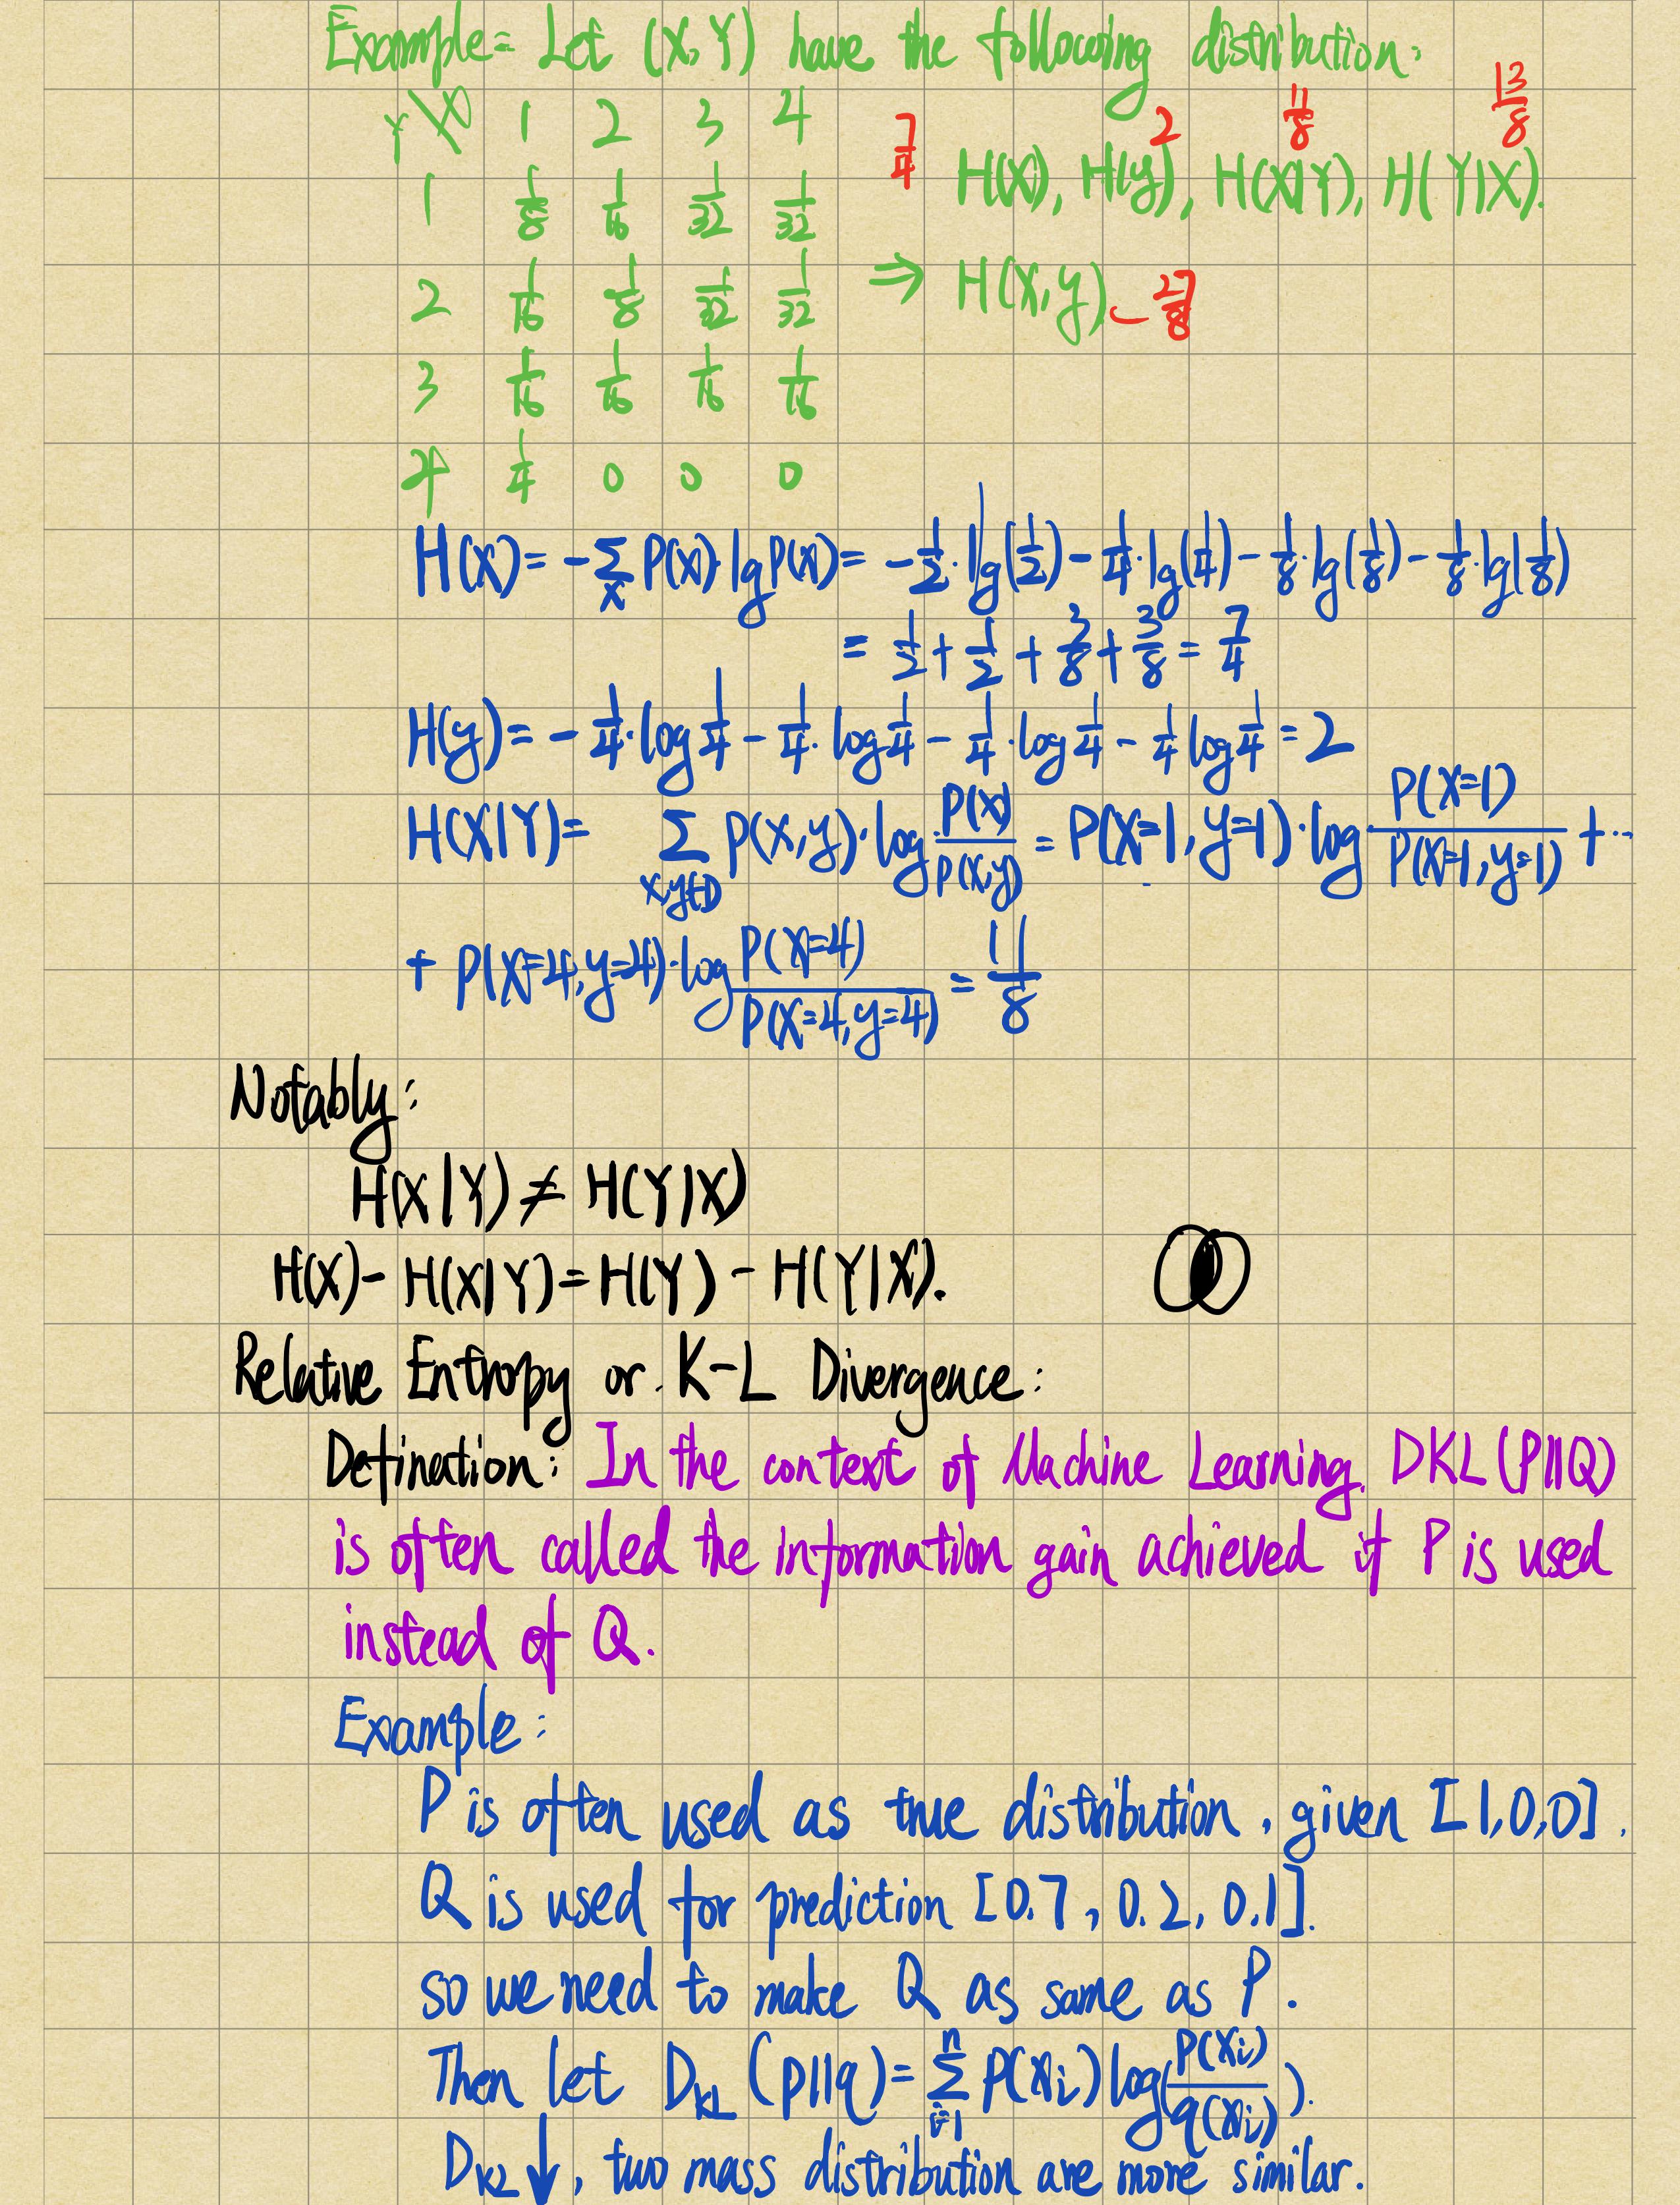 Example: Let (X,Y) have the following distribution:
Y\X 1 2 3 4 7/4 2 11/8 13/8
1 1/8 1/16 1/32 1/32 H(X), H(y), H(X|Y), H(Y|X).
2 1/16 1/8 1/32 1/32 ⇒ H(X,y) 27/8
3 1/16 1/16 1/16 1/16
4 1/4 0 0 0
H(X) = -∑x P(x)·lg P(x) = -1/2·lg(1/2) - 1/4·lg(1/4) - 1/8·lg(1/8) - 1/8·lg(1/8)
= 1/2 + 1/2 + 3/8 + 3/8 = 7/4
H(y) = -1/4·log 1/4 - 1/4·log 1/4 - 1/4·log 1/4 - 1/4 log 1/4 = 2
H(X|Y) = ∑ P(x,y)·log P(x)/P(x,y) = P(X=1,y=1)·log P(X=1)/P(X=1,y=1) + ··
+ P(X=4,y=4)·log P(X=4)/P(X=4,y=4) = 11/8
Notably:
H(X|Y) ≠ H(Y|X)
H(X) - H(X|Y) = H(Y) - H(Y|X).
Relative Entropy or K-L Divergence:
Defination: In the context of Machine Learning, DKL(P||Q)
is often called the information gain achieved if P is used
instead of Q.
Example:
P is often used as true distribution, given [1,0,0].
Q is used for prediction [0.7, 0.2, 0.1].
so we need to make Q as same as P.
Then let DKL(p||q) = ∑ i=1 n P(Xi) log(P(Xi)/q(Xi)).
DKL↓, two mass distribution are more similar.